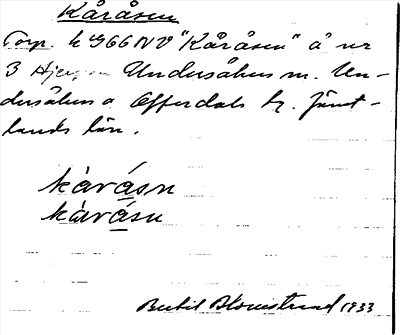 Kåråsen
Torp. k 966 NV "Kåråsen" å nr
3 Undersåkers m. Un-
dersåkers o Offerdals tg. Jämt-
lands län.
kàrásn
kàrásn
Bertil Blomstrand 1933